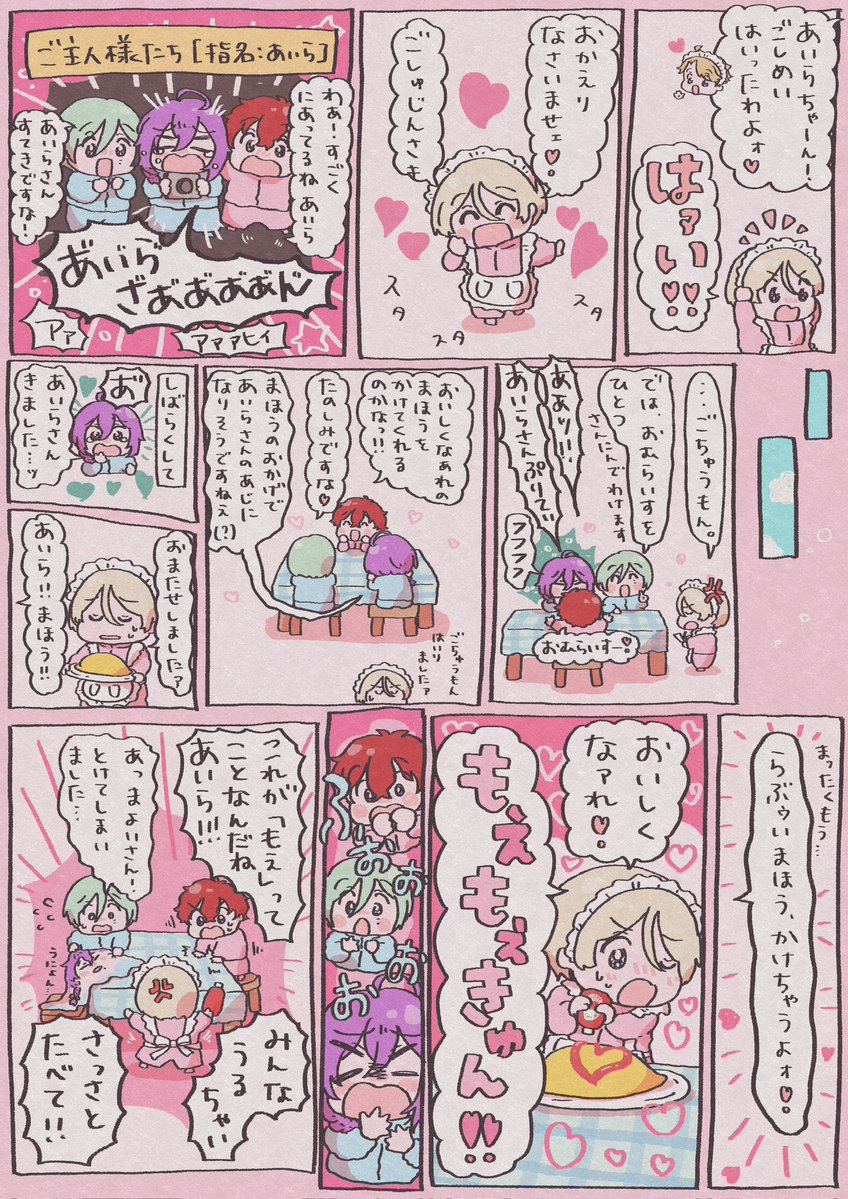 あいらちゃーん!
ごしめい
はいったわよォ♥
はァい!!
おかえり
なさいませェ♥
ごしゅじんさま
スタ
スタ
スタ
ご主人様たち[指名:あいら]
わぁーすごく
にあってるねあいら
あいらさん
すてきですな!
あ゛いら
ざぁあ゛あ゛あ゛ん
アァ
アァァヒィ
…ごちゅうもん。
では、おむらいすを
ひとつ
さんにんでわけます
ああッ!!!
あいらさんぷりてぃ
フフフフ
おむらいすー♥
おいしくなぁれの
まほうを
かけてくれる
のかなっ!!
たのしみですな♥
まほうのおかげで
あいらさんのあじに
なりそうですねぇ(?)
ごちゅうもん
はいり
ましたァ
しばらくして
あ゛
あいらさん
きました…ッ
おまたせしましたァ
あいら!!まほう!!
まったくもう…
らぶぅいまほう、かけちゃうよォ♥
おいしく
なァれ♥
もえもえきゅん!!
ふおおおお
これが「もえ」って
ことなんだね
あいら!!!
あっまよいさん!
とけてしまい
ました…
うにょん…
みんな
うる
ちゃい
さっさと
たべて!!